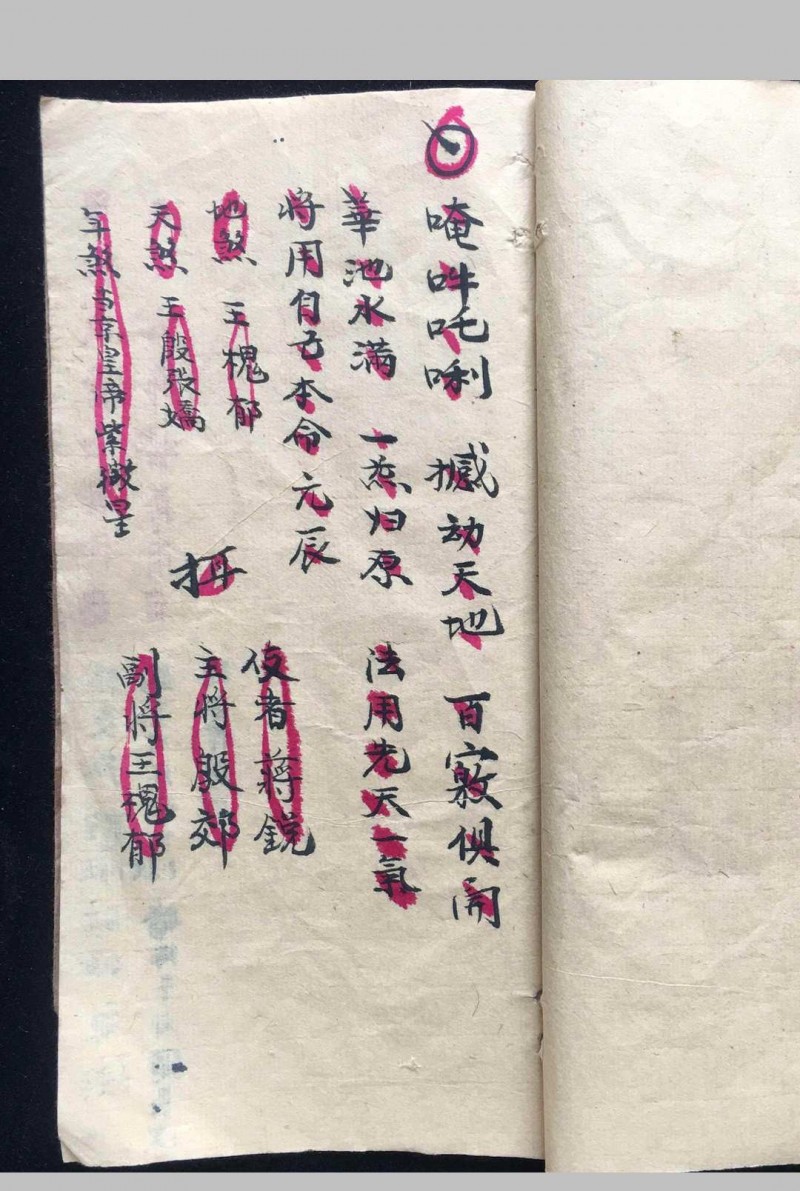 唵吽吒唎 撼动天地 百竅俱開
華池水滿 一炁归原 法用先天一氣
将用自己本命元辰
地煞 王槐郁
天煞 王殷張嬌
年煞 当京皇帝紫微星
使者蔣銳
主将殷郊
副将王槐郁